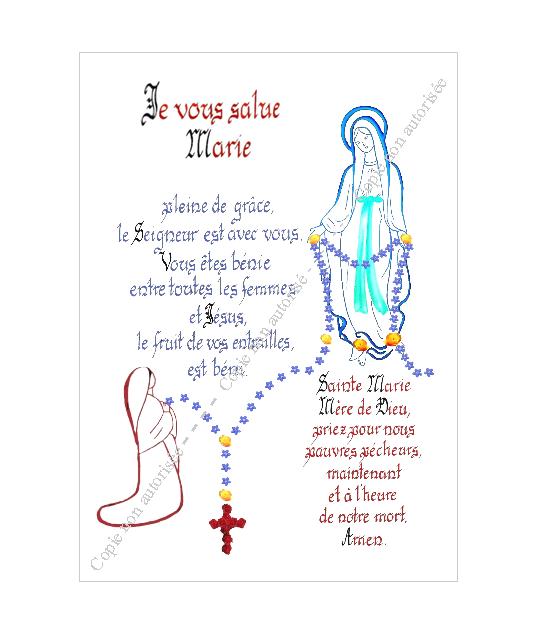 Je vous salue
Marie
pleine de grâce,
le Seigneur est avec vous,
Vous êtes bénie
entre toutes les femmes
et Jésus,
le fruit de vos entrailles,
est béni.
Sainte Marie
Mère de Dieu,
priez pour nous
pauvres pécheurs,
maintenant
et à l'heure
de notre mort,
Amen.
Copie non autorisée - Copie non autorisée - Copie non autorisée